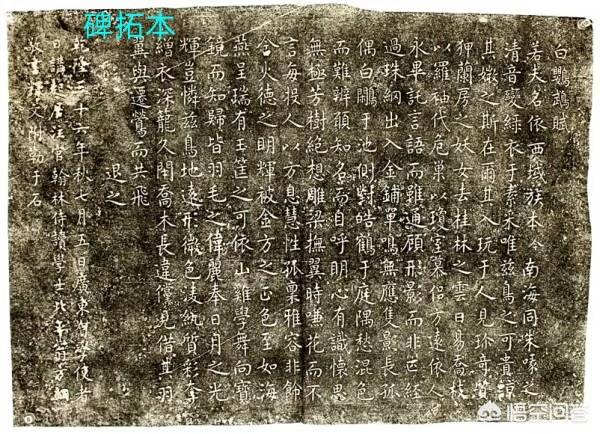 碑拓本
白鸚鵡賦
若夫名依西域族本今南海同朱喙之
清音變綠衣于素采唯茲鳥之可貴諒
其嫩之斯在爾其入玩于人見珎奇質
狎蘭房之妖女去桂林之雲日易喬枝
以羅袖代危巢以瓊室慕侶方遂依人
永畢託言語而雖通顧形影而非匹經
過珠網出入金鋪單鳴無應隻影長孤
偶白鷴于池側對皓鶴于庭隅愁混色
而難辨願知名而自呼明心有識懷思
無極芳樹絕想雕梁撫翼時嗛花而不
言每投人以方息慧性孤稟雅容非飾
含火德之明輝被金方之正色至如海
燕呈瑞有玉筐之可依山雞學舞向寶
鏡而知歸皆羽毛之偉麗奉日月之光
輝豈憐茲鳥地遠形微色凌紈質彩奪
繒衣深籠久閉喬木長違儻見借其羽
翼與遷鶯而共飛
退之
乾隆三十六年秋七月五日廣東督學使者
日講起居注官翰林侍讀學士北平翁方綱
敬書釋文附勒于石
悟空问答